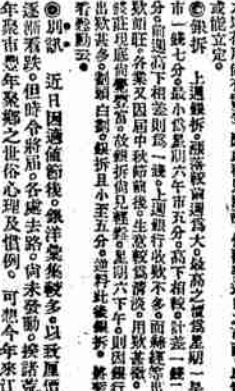 或能立定。
◎銀拆　上週銀拆。漲落較前週爲大。最高之價爲星期一早
市一錢七分。最小爲星期六午市五分。高下相較。計差一錢二
分。前週高下相差則爲一錢。上週銀行收欵不多。而絲經等出
欵頗旺。各業又因屆中秋節前後。生意較爲清淡。用欵甚微。
莊現底尚覺豐富。故銀拆尚見輕鬆。星期六下午。則因銀行
出欵甚多。劃頭白劃。銀拆且小至五分。逆料此後銀拆。將
看鬆動云。
◎別訊　近日因適値節後。銀洋彙集較多。以致厘價
逐漸看跌。但時令將屆。各處去路。尙未發動。揆諸
年聚市熟年聚鄉之世俗心理及慣例。可想今年來江